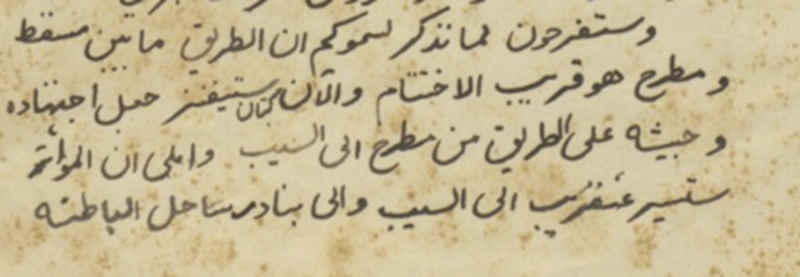 وستفرحون لما نذكر لسموكم ان الطريق ما بين مسقط
ومطرح هو قريب الاختتام والآن كبتان ستيفنز جعل اجتهاده
وجيشه على الطريق من مطرح الى السيب واملى ان المواتر
ستسير عنقريب الى السيب والى بنادر ساحل الباطنة